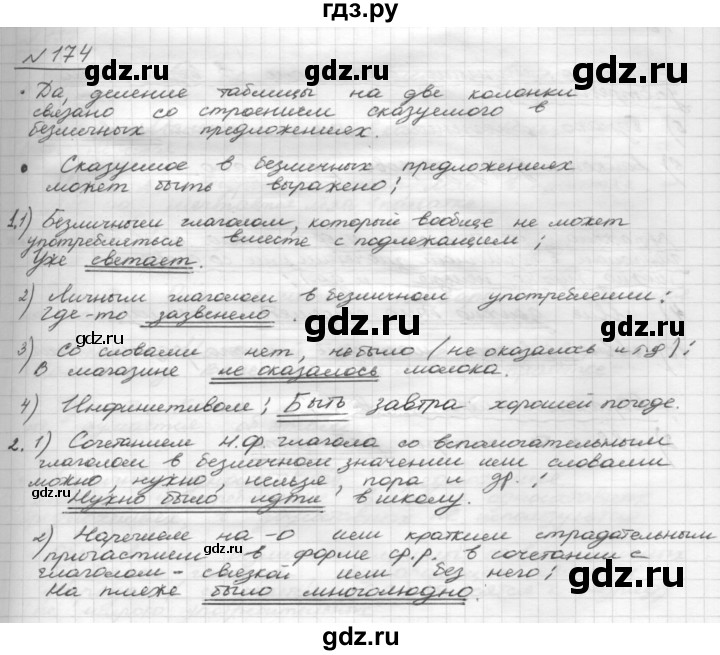 гдз.ру
№ 174
gdz.ru gdz.ru gdz.ru
• Да, деление таблицы на две колонки
связано со строением сказуемого в
безличных предложениях.
• Сказуемое в безличных предложениях
может быть выражено:
gdz.ru gdz.ru
1.1) Безличным глаголом, который вообще не может
употребляться вместе с подлежащим:
Уже светает.
gdz.ru
2) Личным глаголом в безличном употреблении:
Где-то зазвенело.
gdz.ru gdz.ru
3) Со словами нет, не было (не оказалось и т.д):
В магазине не оказалось молока.
4) Инфинитивом: Быть завтра хорошей погоде.
gdz.ru gdz.ru
2. 1) Сочетанием н.ф. глагола со вспомогательным
глаголом в безличном значении или словами
можно, нужно, нельзя, пора и др.:
Нужно было идти в школу.
gdz.ru gdz.ru
2) Наречием на -о или кратким страдательным
причастием в форме ср.р. в сочетании с
глаголом-связкой или без него:
На пляже было многолюдно.
gdz.ru gdz.ru gdz.ru
gdz.ru